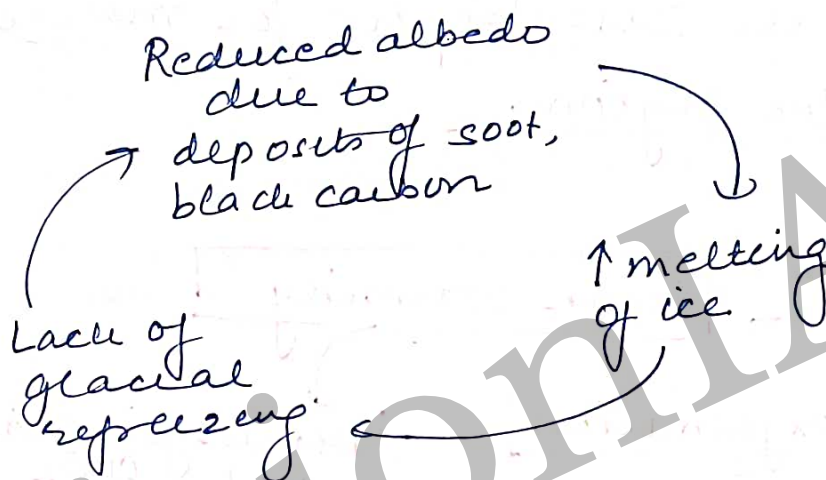 Reduced albedo
due to
deposits of soot,
black carbon
↑ melting
of ice.
Lack of
glacial
refreezing.
ionIA